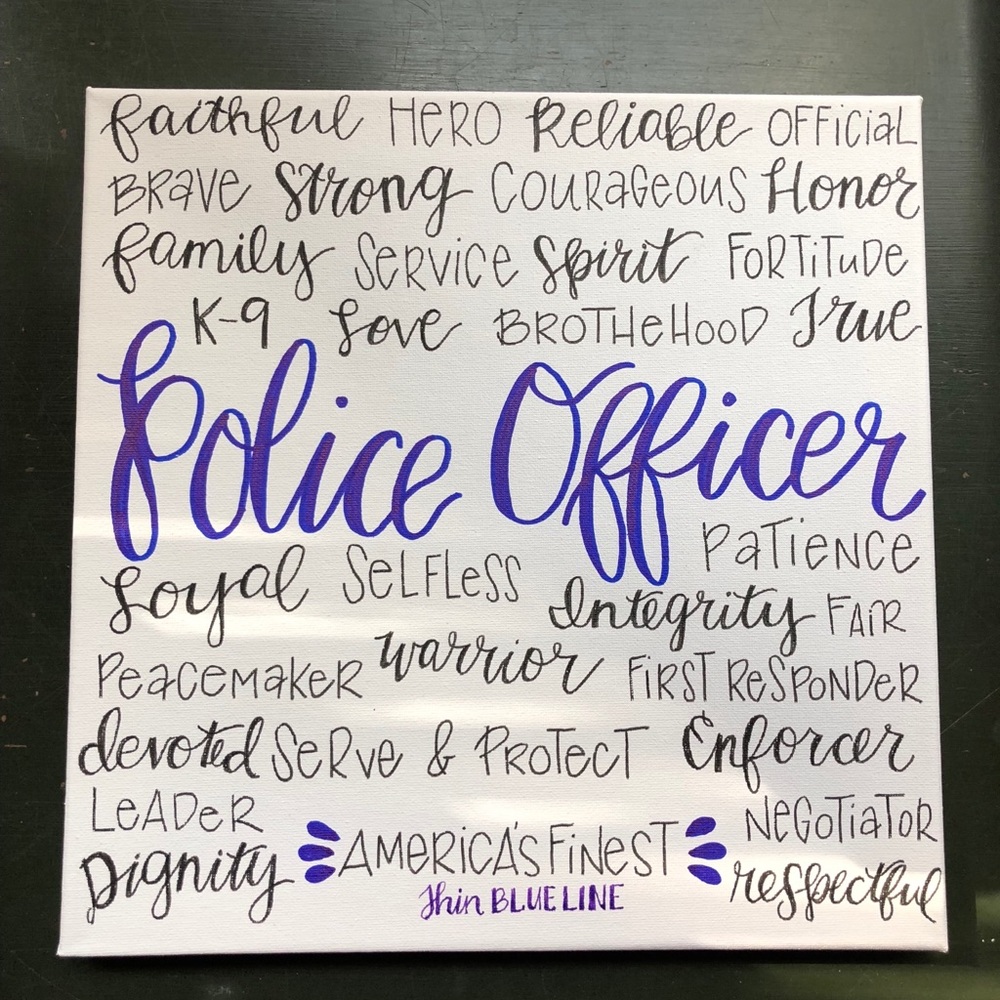 faithful HERO Reliable OFFiCiAL
BRAVE Strong COURAGEOUS Honor
family SERVICE Spirit FORTiTUDE
K-9 Love BROTHeHOOD True
Police Officer
Loyal SeLFLeSS PATIENCE
Integrity FAiR
PEACEMAKER warrior FiRST ReSPONDER
devoted SeRVe & PROTECT Enforcer
LeADeR NEGOTiATOR
Dignity AMERiCA'S FiNEST respectful
Thin BLUE LINE